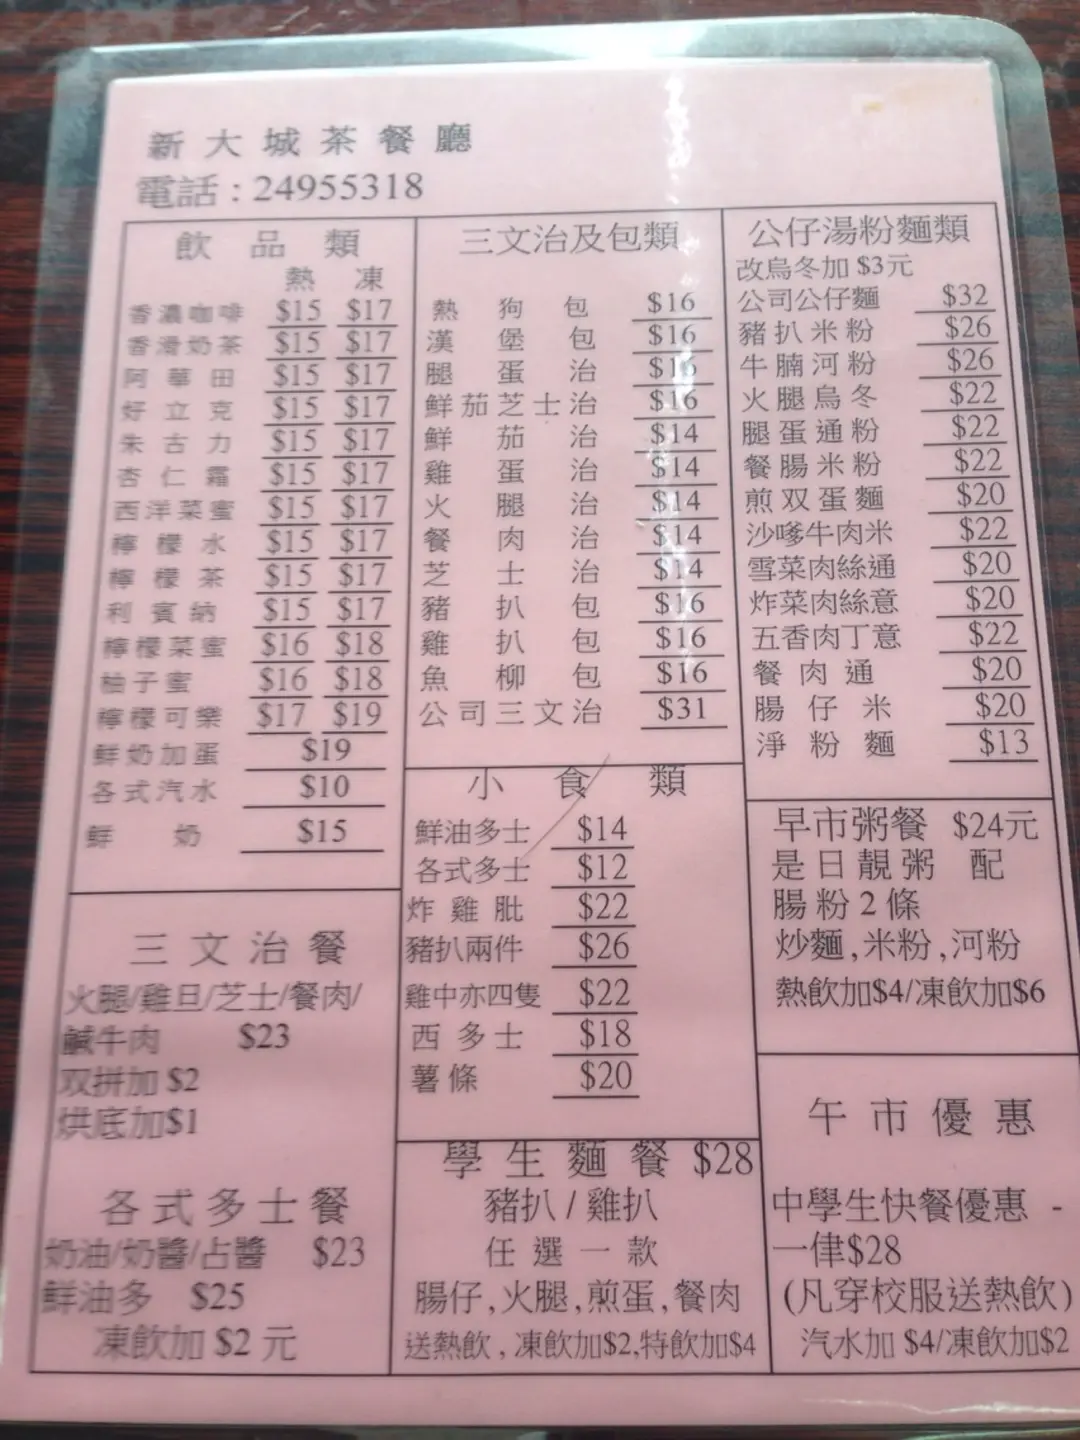 新大城茶餐廳
電話：24955318
飲品類
熱 凍
香濃咖啡 $15 $17
香滑奶茶 $15 $17
阿華田 $15 $17
好立克 $15 $17
朱古力 $15 $17
杏仁霜 $15 $17
西洋菜蜜 $15 $17
檸檬水 $15 $17
檸檬茶 $15 $17
利賓納 $15 $17
檸檬菜蜜 $16 $18
柚子蜜 $16 $18
檸檬可樂 $17 $19
鮮奶加蛋 $19
各式汽水 $10
鮮奶 $15
三文治餐
火腿/雞旦/芝士/餐肉/
鹹牛肉 $23
双拼加 $2
烘底加$1
各式多士餐
奶油/奶醬/占醬 $23
鮮油多 $25
凍飲加 $2 元
三文治及包類
熱狗包 $16
漢堡包 $16
腿蛋治 $16
鮮茄芝士治 $16
鮮茄治 $14
雞蛋治 $14
火腿治 $14
餐肉治 $14
芝士治 $14
豬扒包 $16
雞扒包 $16
魚柳包 $16
公司三文治 $31
小食類
鮮油多士 $14
各式多士 $12
炸雞肶 $22
豬扒兩件 $26
雞中亦四隻 $22
西多士 $18
薯條 $20
學生麵餐 $28
豬扒 / 雞扒
任選一款
腸仔,火腿,煎蛋,餐肉
送熱飲,凍飲加$2,特飲加$4
公仔湯粉麵類
改烏冬加 $3元
公司公仔麵 $32
豬扒米粉 $26
牛腩河粉 $26
火腿烏冬 $22
腿蛋通粉 $22
餐腸米粉 $22
煎双蛋麵 $20
沙嗲牛肉米 $22
雪菜肉絲通 $20
炸菜肉絲意 $20
五香肉丁意 $22
餐肉通 $20
腸仔米 $20
淨粉麵 $13
早市粥餐 $24元
是日靚粥 配
腸粉2條
炒麵,米粉,河粉
熱飲加$4/凍飲加$6
午市優惠
中學生快餐優惠 -
一侓$28
(凡穿校服送熱飲)
汽水加 $4/凍飲加$2